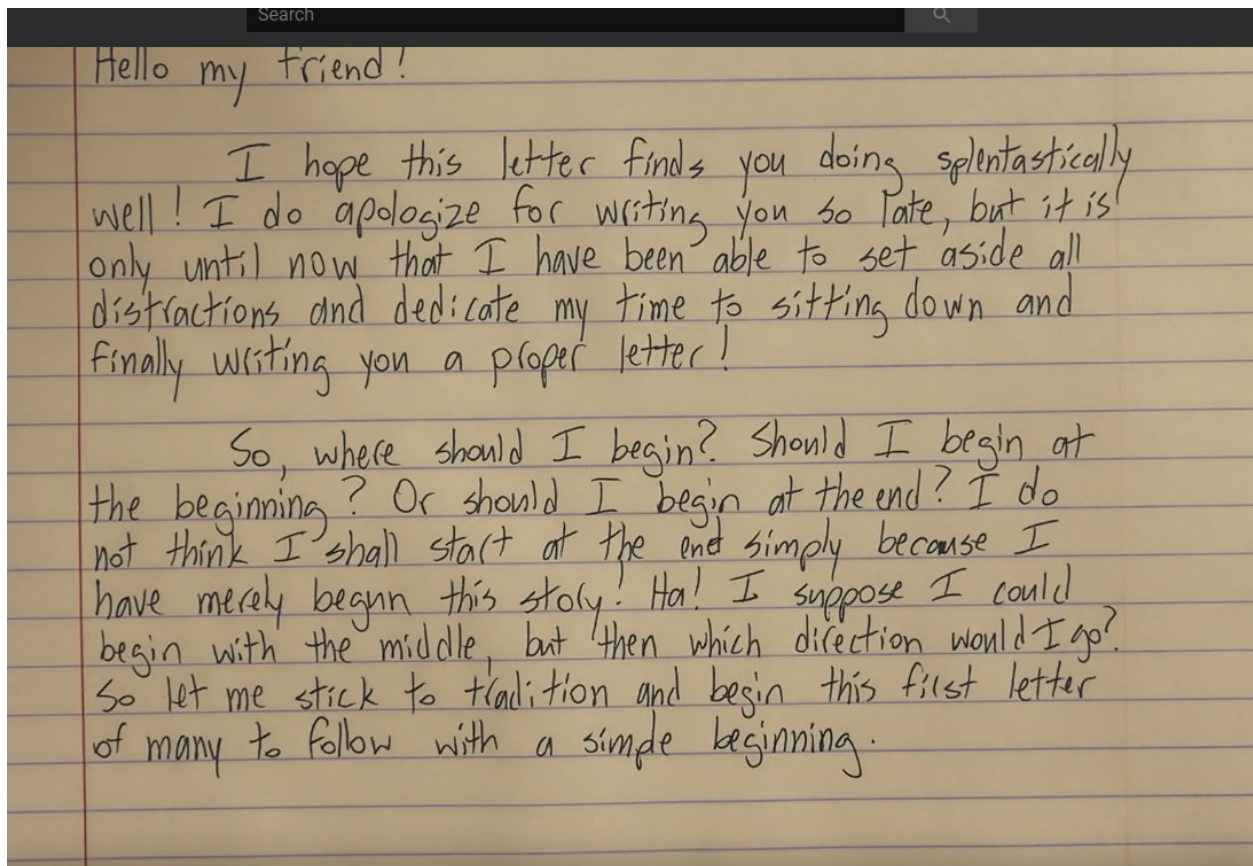 Search
Hello my friend!
I hope this letter finds you doing splentastically
well! I do apologize for writing you so late, but it is
only until now that I have been able to set aside all
distractions and dedicate my time to sitting down and
finally writing you a proper letter!
So, where should I begin? Should I begin at
the beginning? Or should I begin at the end? I do
not think I shall start at the end simply because I
have merely begun this story! Ha! I suppose I could
begin with the middle, but then which direction would I go?
So let me stick to tradition and begin this first letter
of many to follow with a simple beginning.